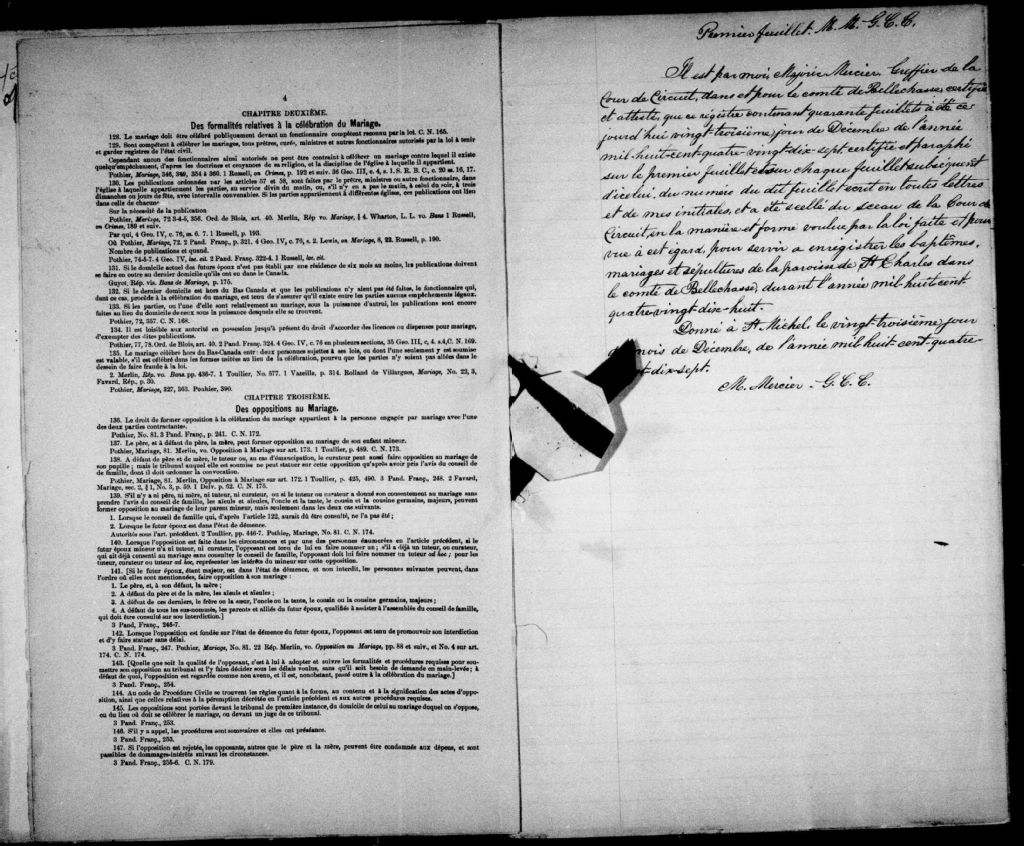 4
CHAPITRE DEUXIÈME.
Des formalités relatives à la célébration du Mariage.
128. Le mariage doit être célébré publiquement devant un fonctionnaire compétent reconnu par la loi. C. N. 165.
129. Sont compétent à célébrer les mariages, tous prêtres, curés, ministres et autres fonctionnaires autorisés par la loi à tenir
et garder registres de l'état civil.
Cependant aucun des fonctionnaires ainsi autorisés ne peut être contraint à célébrer un mariage contre lequel il existe
quelqu'empêchement, d'après les doctrines et croyances de sa religion, et la discipline de l'église à laquelle il appartient.
Pothier, Mariage, 346, 349, 354 à 360. 1 Russell, on Crimes, p. 192 et suiv. 36 Geo. III, c. 4, s. 1. S. R. B. C., c. 20 ss. 16, 17.
130. Les publications ordonnées par les articles 57 et 58, sont faites par le prêtre, ministres ou autre fonctionnaire, dans
l'église à laquelle appartiennent les parties, au service divin du matin, ou, s'il n'y en a pas le matin, à celui du soir, à trois
dimanches ou jours de fête, avec intervalle convenables. Si les parties appartiennent à différentes églises, ces publications ont lieu
dans celle de chacune
Sur la nécessité de la publication
Pothier, Mariage, 72 3-4-5, 356. Ord. de Blois, art. 40. Merlin, Rép vo. Mariage, § 4. Wharton, L. L. vo. Bans 1 Russell,
on Crimes, 189 et suiv.
Par qui, 4 Geo. IV, c. 76, ss. 6. 7. 1 Russell, p. 193.
Où Pothier, Mariage, 72. 2 Pand. Franç. p. 321. 4 Geo. IV, c. 76, s. 2. Lewis, on Mariage, 8, 22. Russell, p. 190.
Nombre de publications et quand.
Pothier, 74-5-7. 4 Geo. IV, loc. cit. 2 Pand. Franç. 322-4. 1 Russell, loc. cit.
131. Si le domicile actuel des future époux n'est pas établi par une résidence de six mois au moins, les publications doivent
se faire en outre au dernier domicile qu'ils ont eu dans le Canada.
Guyot, Rép. vis. Bans de Mariage, p. 175.
132. Si le dernier domicile est hors du Bas Canada et que les publications n'y aient pas été faites, le fonctionnaire qui,
dans ce cas, procède à la célébration du mariage, est tenu de s'assurer qu'il existe entre les parties aucuns empêchements légaux.
133. Si les parties, ou l'une d'elle sont relativement au mariage, sous la puissance d'autrui, les publications sont encore
faites au lieu du domicile de ceux sous la puissance desquels elle se trouvent.
Pothier, 72, 357. C. N. 168.
134. Il est loisible aux autorité en possession jusqu'à présent du droit d'accorder des licences ou dispenses pour mariage,
d'exempter des dites publications.
Pothier, 77, 78. Ord. de Blois, art. 40. 2 Pand Franç. 324. 4 Geo. IV, c. 76 en plusieurs sections, 35 Geo. III, c, 4. s.4, C. N. 169.
135. Le mariage célébré hors du Bas-Canada entre deux personnes sujettes à ses lois, ou dont l'une seulement y est soumise
est valable, s'il est célébré dans les formes usitées au lieu de la célébration, pourvu que les parties n'y soient pas allées dans le
dessein de faire fraude à la loi.
2. Merlin, Rép. vo. Bans. pp 436-7. 1 Toullier, No. 577. 1 Vazeille, p. 314. Rolland de Villargues, Mariage, No. 22, 3,
Favard, Rép., p. 30.
Pothier, Mariage, 327, 363. Pouhier, 390.
CHAPITRE TROISIÈME.
Des oppositions au Mariage.
136. Le droit de former opposition à la célébration du mariage appartient à la personne engagée par mariage avec l'une
des deux parties contractantes.
Pothier, No. 81. 3 Pand. Franç, p. 241. C. N. 172.
137. Le père, et à défaut du père, la mère, peut former opposition au mariage de son enfant mineur.
Pothier, Mariage, 81. Merlin, vo. Opposition au Mariage sur art. 173. 1 Toullier, p. 489. C. N. 173.
138. A défaut de père et de mère, le tuteur ou, au cas d'émancipation, le curateur peut aussi faire opposition au mariage de
son pupille; mais le tribunal auquel elle est soumise ne peut statuer sur cette opposition qu'après avoir pris l'avis du conseil de
de famille, dont il doit ordonner la convocation.
Pothier, Mariage, 81. Merlin, Opposition à Mariage sur art. 172. 1 Toullier, p. 425, 490. 3 Pand. Franç., 248. 2 Favard,
Mariage, sec. 2, § 1, No. 3, p. 59. 1 Delv. p. 62. C. N. 175.
139. S'il n'y a ni père, ni mère, ni tuteur, ni curateur, ou si le tuteur ou curateur a donné son consentement au mariage sans
prendre l'avis du conseil de famille, les aïeuls et aïeules, l'oncle et la tante, le cousin et la cousine germains, majeurs, peuvent
former opposition au mariage de leur parent mineur, mais seulement dans les deux cas suivants.
1. Lorsque le conseil de famille qui, d'après l'article 122, aurait dû être consulté, ne l'a pas été;
2. Lorsque le futur époux est dans l'état de démence.
Autorités sous l'art. précédent. 2 Toullier, pp. 446-7. Pothier, Mariage, No. 81. C. N. 174.
140. Lorsque l'opposition est faite dans les circonstances et par une des personnes énumérées en l'article précédent, si le
futur époux mineur n'a ni tuteur, ni curateur, l'opposant est tenu de lui en faire nommer un; s'il a déjà un tuteur, ou curateur,
qui ait déjà consenti au mariage sans consulter le conseil de famille, l'opposant doit lui faire nommer un tuteur ad hoc; pour les
tuteur, curateur ou tuteur ad hoc, représenter les intérêts du mineur sur cette opposition.
141. [Si le futur époux, étant majeur, est dans l'état de démence, et non interdit, les personnes suivantes peuvent, dans
l'ordre où elles sont mentionnées, faire opposition à son mariage:
1. Le père, et, à son défaut, la mère;
2. A défaut du père et de la mère, les aïeuls et aïeules;
3. A défaut de ces derniers, le frère ou la sœur, l'oncle ou la tante, le cousin ou la cousine germains, majeurs;
4. A défaut de tous les sus-nommés, les parents et alliés du futur époux, qualifiés à assister à l'assemblée du conseil de famille,
qui doit être consulté sur sou interdiction.]
3 Pand, Franç., 246-7.
142. Lorsque l'opposition est fondée sur l'état de démence du futur époux, l'opposant est tenu de promouvoir son interdiction
et d'y faire statuer sans délai.
3 Pand. Franç., 247. Pothier, Mariage, No. 81. 22 Rép. Merlin, vo. Opposition au Mariage, pp. 88 et suiv., et No. 4 sur art.
174. C. N. 174.
143. [Quelle que soit la qualité de l'opposant, c'est à lui à adopter et suivre les formalités et procédures requises pour sou-
mettre son opposition au tribunal et l'y faire décider sous les délais voulus, sans qu'il soit besoin de demande en main-levée; à
défaut de quoi, l'opposition est regardée comme non avenu, et il est, nonobstant, passé outre à la célébration du mariage.]
3 Pand. Franç., 254.
144. Au code de Procédure Civile se trouvent les règles quant à la forme, au contenu et à la signification des actes d'oppo-
sition, ainsi que celles relatives à la péremption décrétée en l'article précédent et aux autres procédures requises.
145. Les oppositions sont portées devant le tribunal de première instance, du domicile de celui au mariage duquel on s'oppose,
ou du lieu où doit se célébrer le mariage, ou devant un juge de ce tribunal.
3 Pand. Franç., 253.
146. S'il y a appel, les procédures sont sommaires et elles ont préséance.
3 Pand. Franç., 253.
147. Si l'opposition est rejetée, les opposants, autres que le père et la mère, peuvent être condamnés aux dépens, et sont
passibles de dommages-intérêts suivant les circonstances.
3 Pand. Franç., 255-6. C. N. 179.
Premier feuillet. M. M. G. C. C.
Il est par moi Majoric Mercier Greffier de la
Cour de Circuit, dans et pour le comté de Bellechasse, certifié
et attesté, que ce registre contenant quarante feuillets a été ce
jourd'hui vingt troisième jour de Décembre de l'année
mil-huit-cent-quatre-vingt-dix-sept certifié et paraphé
sur le premier feuillet et sur chaque feuillet subséquent
d'icelui, du numéro du dit feuillet écrit en toutes lettres
et de mes initiales, et a été scellé du sceau de la Cour de
Circuit, en la manière et forme voulue par la loi faite et pour
vue à cet égard, pour servir à enregistrer les baptêmes,
mariages et sépultures de la paroisse de St Charles dans
le comté de Bellechasse, durant l'année mil huit cent
quatre-vingt-dix-huit.
Donné à St Michel, le vingt troisième jour
mois de Décembre, de l'année mil huit cent-quatre-
dix-sept.
M. Mercier - G. C. C.